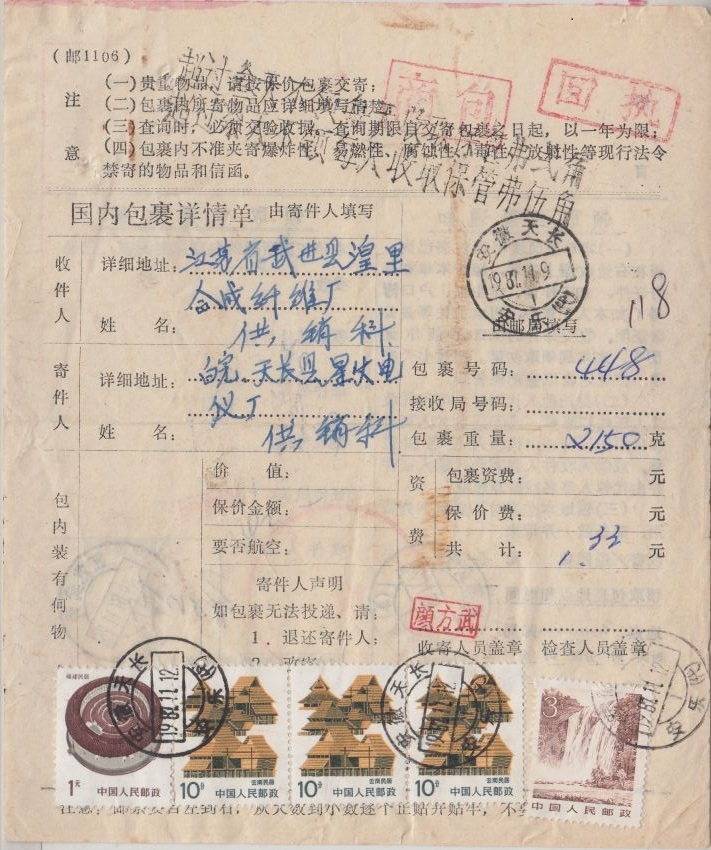 (邮1106)
注意
(一)贵重物品,请按保价包裹交寄;
(二)包裹内所寄物品应详细填写清楚;
(三)查询时,必须交验收据。查询期限自交寄包裹之日起,以一年为限;
(四)包裹内不准夹寄爆炸性、易燃性、腐蚀性、毒性、放射性等现行法令
禁寄的物品和信函。
商包
国内包裹详情单 由寄件人填写
收件人
详细地址:江苏省武进县湟里
合成纤维厂
姓名:供销科
安徽天长
1987.11.9
由邮局填写
118
寄件人
详细地址:皖天长县星火电
仪厂
姓名:供销科
包裹号码:448
接收局号码:
包裹重量:2150克
包内装有何物
价值:
保价金额:
要否航空:
资费
包裹资费:元
保价费:元
共计:1.33元
寄件人声明
如包裹无法投递、请:
1.退还寄件人;
颜方武
收寄人员盖章 检查人员盖章
安徽天长
1987.11.12
安徽天长
1987.11.12
1987.11.12
福建民居
1元
中国人民邮政
云南民居
10分
中国人民邮政
云南民居
10分
中国人民邮政
云南民居
10分
中国人民邮政
3分
中国人民邮政